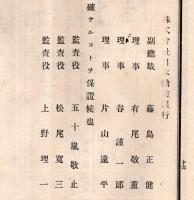 株式會社日本勸業銀行
副總裁 藤島正健
理事 有尾敬重
理事 谷謹一郎
理事 片山遠平
確ナルコトヲ保證候也
監査役 五十嵐敬止
監査役 松尾寛三
監査役 上野理一